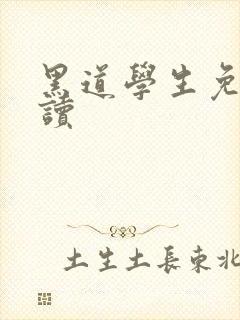 黑道學生免
讀
土生土長東北